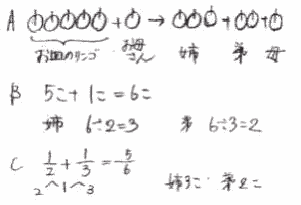 A ＋ → ＋ ＋
お皿のリンゴ お母さん 姉 弟 母
B 5こ＋1こ＝6こ
姉 6÷2＝3 弟 6÷3＝2
C 1/2 + 1/3 = 5/6
2へ1へ3 姉3こ 弟2こ